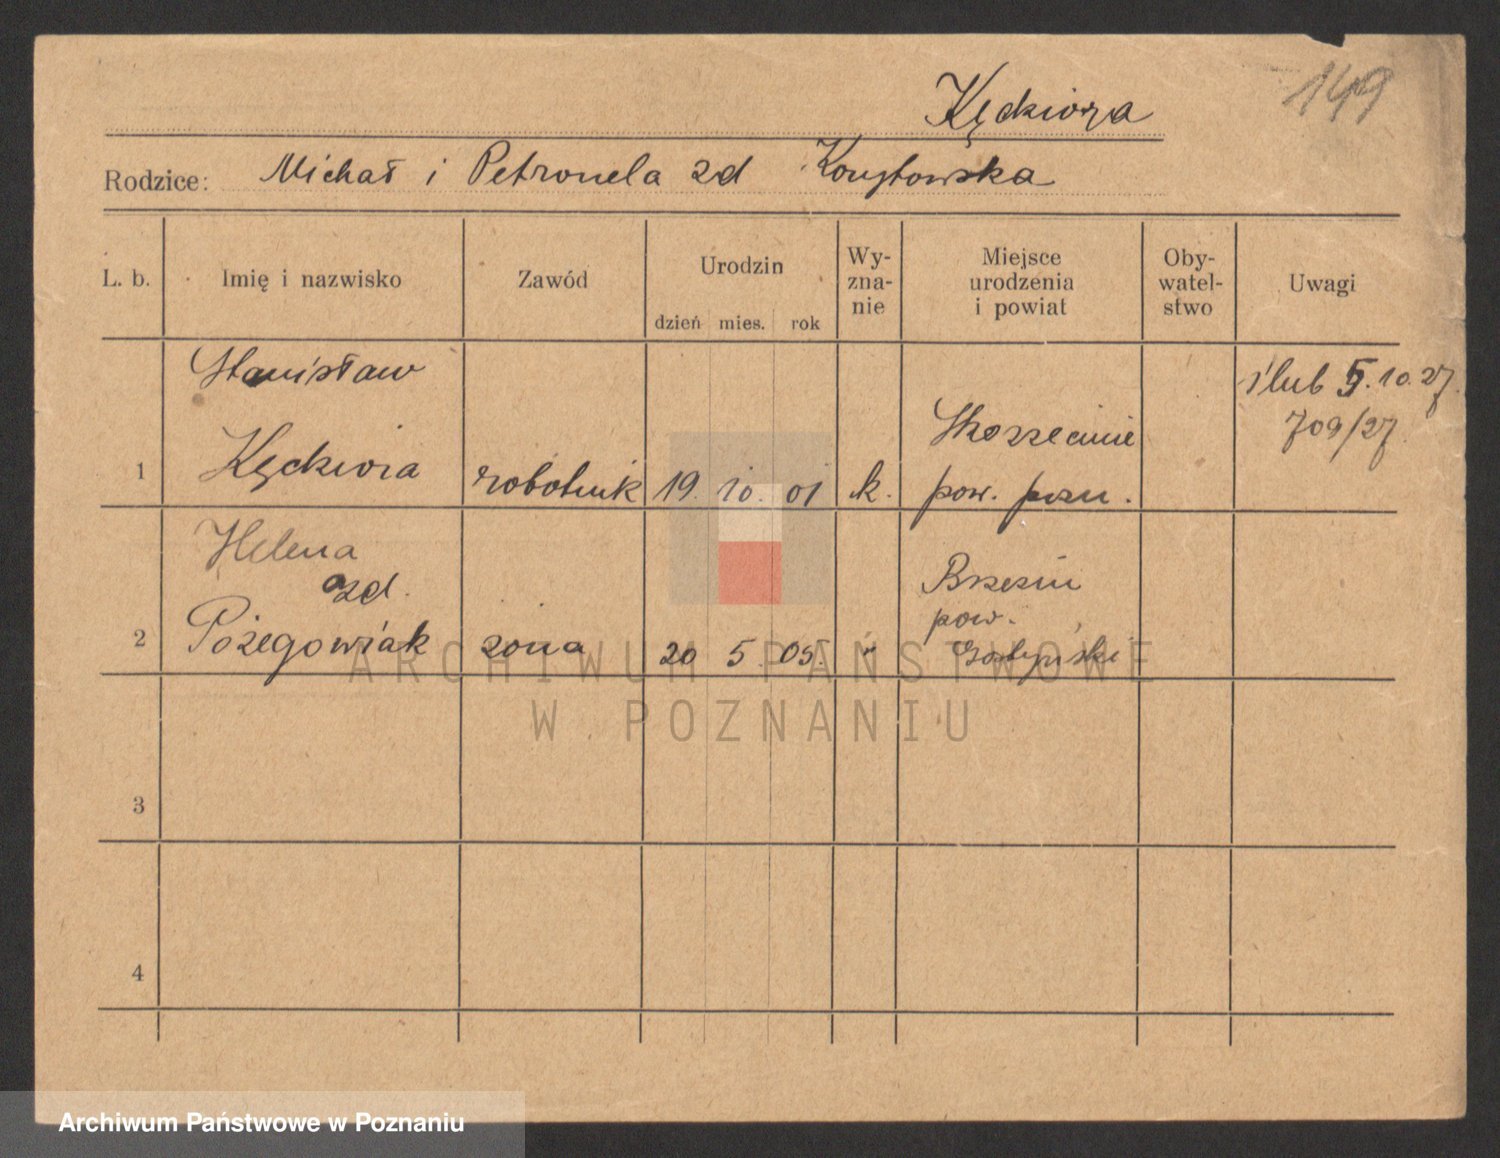 149
Kędziora
Rodzice: Michał i Petronela zd Korytowska
L. b.
Imię i nazwisko
Zawód
Urodzin
dzień mies. rok
Wy-
zna-
nie
Miejsce
urodzenia
i powiat
Oby-
watel-
stwo
Uwagi
1
Stanisław
Kędziora
robotnik
19. 10. 01
k.
pow. pozn.
ślub 5.10.27.
709/27.
2
Helena
zd.
Pożegowiak
żona
20 5. 05.
"
pow.
Gostyński
3
4
ARCHIWUM PAŃSTWOWE
W POZNANIU
Archiwum Państwowe w Poznaniu